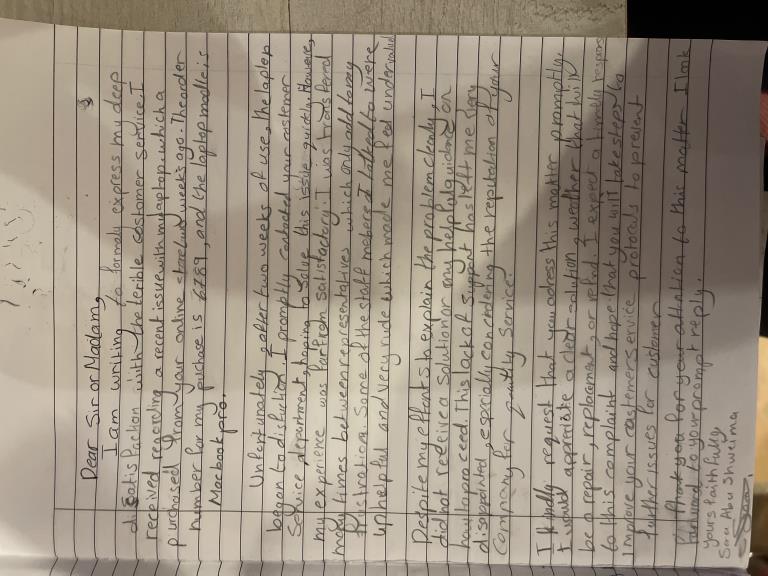 Dear Sir or Madam,
I am writing to formaly express my deep
disatisfaction with the terible costomer service I
received regarding a recent issue with my laptop, which a
purchased from your online store two weeks ago. The order
number for my purchase is 6789, and the laptop modle is
Macbook pro.
Unfortunately, after two weeks of use, the laptop
began to disfuction. I promptly contacted your customer
Service department, hoping to solve this issue quickly. However,
my experience was far from satisfactory. I was transfered
many times between representatives which only add to my
fristration. Some of the staff mebers I talked to were
unhelpful and very rude which made me feel undervalued
Despite my efforts to explain the problem clearly, I
did not receive a solution or any helpful guidance on
how to proceed. This lack of support has left me very
disappointed, especially concidering the reputation of your
company for quality service.
I kindly request that you adress this matter promptly.
I would appriciate a clear solution, weather that will
be a repair, replacement, or refund. I expect a timely respons
to this complaint and hope that you will take steps to
improve your custemers ervice protocals to prevent
further issues for customer
Thank you for your attention to this matter I look
forward to your prompt reply.
yours faithfully
Sara Abu Shweima